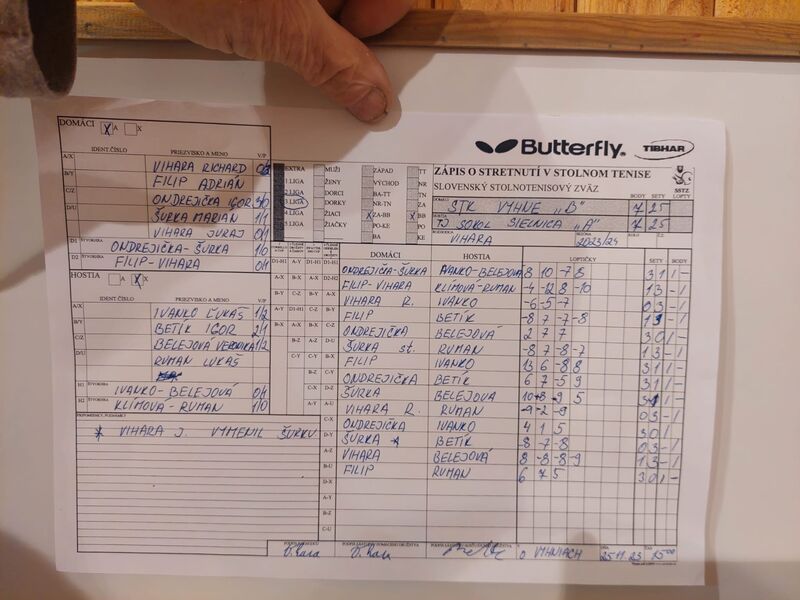 Butterfly. TIBHAR
DOMÁCI X A X
IDENT.ČÍSLO PRIEZVISKO A MENO V/P
A/X VIHARA RICHARD
B/Y FILIP ADRIÁN
C/Z ONDREJIČKA IGOR 3/0
D/U ŠURKA MARIAN 1/1
VIHARA JURAJ 0/1
D1 ŠTVORHRA ONDREJIČKA-ŠURKA 1/0
D2 FILIP-VIHARA 0/1
HOSTIA A X
IDENT.ČÍSLO PRIEZVISKO A MENO V/P
A/X IVANKO ĽUKÁŠ 1/2
B/Y BETÍK IGOR 2/1
C/Z BELEJOVÁ VERONIKA 1/2
D/U RUMAN LUKÁŠ
H1 ŠTVORHRA IVANKO-BELEJOVÁ 0/1
H2 KLÍMOVÁ-RUMAN 1/0
PRIPOMIENKY, PODPISY
* VIHARA J. VYMENIL ŠURKU
EXTRA MUŽI ZÁPAD TT
1 LIGA ŽENY VÝCHOD NR
2 LIGA DORCI BA-TT TN
3 LIGA DORKY NR-TN ZA
4 LIGA ŽIACI X ZA-BB X BB
5 LIGA ŽIAČKY PO-KE PO
BA KE
ZÁPIS O STRETNUTÍ V STOLNOM TENISE
SLOVENSKÝ STOLNOTENISOVÝ ZVÄZ
SSTZ
BODY SETY LOPTY
STK VYHNE „B" 7 25
TJ SOKOL SIELNICA „A" 7 25
VIHARA 2023/24
DOMÁCI HOSTIA LOPTIČKY SETY BODY
ONDREJIČKA-ŠURKA IVANKO-BELEJOVÁ 8 10 -7 8 3 1 1 -
FILIP-VIHARA KLÍMOVÁ-RUMAN -4 -12 8 -10 1 3 - 1
VIHARA R. IVANKO -6 -5 -7 0 3 - 1
FILIP BETÍK -8 7 -7 -8 1 3 - 1
ONDREJIČKA BELEJOVÁ 2 7 7 3 0 1 -
ŠURKA st. RUMAN -8 7 -8 -7 1 3 - 1
FILIP IVANKO 13 6 -8 8 3 1 1 -
ONDREJIČKA BETÍK 6 7 -5 9 3 1 1 -
ŠURKA BELEJOVÁ
VIHARA R. RUMAN -9 -2 -9 0 3 - 1
ONDREJIČKA IVANKO 4 1 5 3 0 1
ŠURKA * BETÍK -8 -7 -8 0 3 - 1
VIHARA BELEJOVÁ 8 -8 -8 -9 1 3 - 1
FILIP RUMAN 6 7 5 3 0 1 -
V VYHNIACH 25 11 23 15 00